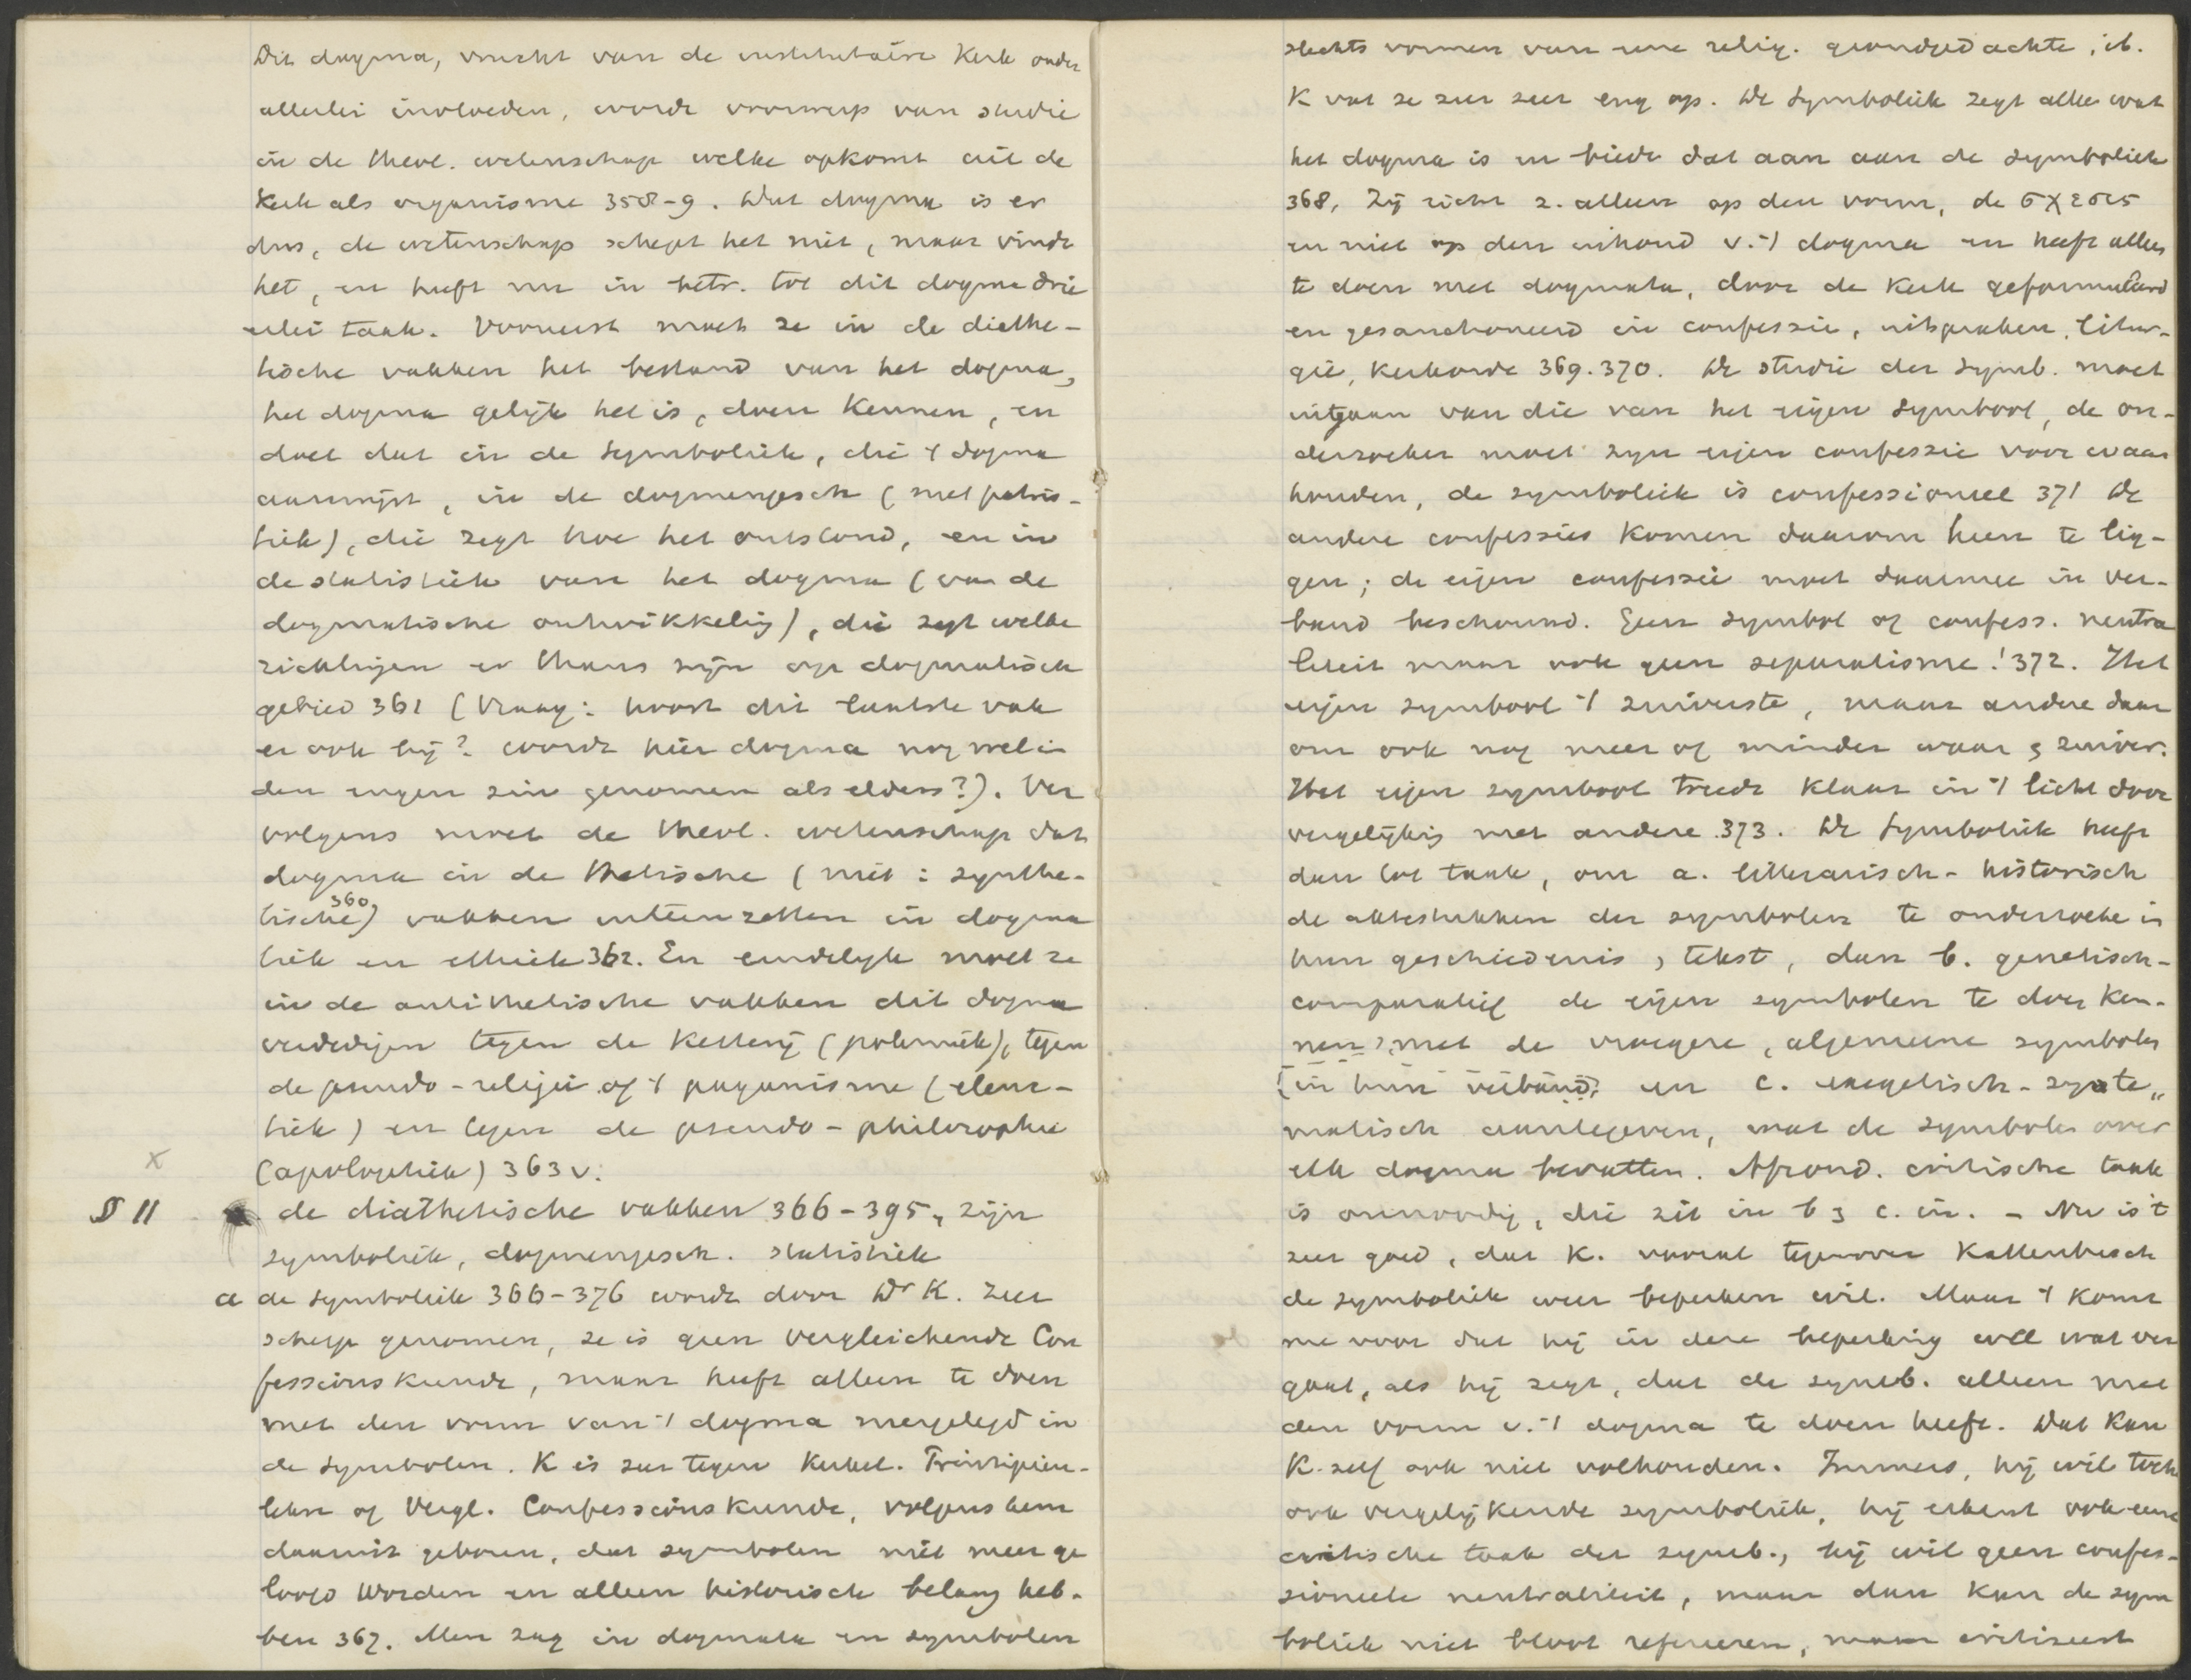 Dit dogma, vrucht van de institutaire Kerk onder
allerlei invloeden, wordt voorwerp van studie
in de theol. wetenschap welke opkomt uit de
Kerk als organisme 358-9. Het dogma is er
dus, de wetenschap schept het niet, maar vindt
het, en heeft nu in betr. tot dit dogma drie
erlei taak. Vooreerst moet ze in de diathe-
tische vakken het bestand van het dogma,
het dogma gelijk het is, doen kennen, en
doet dat in de symboliek, die 't dogma
aanwijst, in de dogmengesch (met patris-
tiek), die zegt hoe het ontstond, en in
de statistiek van het dogma (van de
dogmatische ontwikkelig), die zegt welke
richtingen er thans zijn op dogmatisch
gebied 361 (Vraag: hoort dit laatste vak
er ook bij? wordt hier dogma nog wel in
den engen zin genomen als elders?). Ver
volgens moet de theol. wetenschap dat
dogma in de thetische (niet: synthe-
tische 360) vakken uiteenzetten in dogma
tiek en ethiek 362. En eindelijk moet ze
in de antithetische vakken dit dogma
verdedigen tegen de Ketterij (polemiek), tegen
de pseudo-religie of 't paganisme (elenc-
tiek) en tegen de pseudo-philosophie
x (apologetiek) 363 v.
§ 11 de diathetische vakken 366-395, zijn
symboliek, dogmengesch. statistiek
a de symboliek 366-376 wordt door Dr K. zeer
scherp genomen, ze is geen vergleichende Con
fessionskunde, maar heeft alleen te doen
met den vorm van 't dogma neergelegd in
de symbolen. K is zeer tegen Kirchl. Prinzipien-
lehre of Vergl. Confessionskunde, volgens hem
daaruit geboren, dat symbolen niet meer ge
loofd worden en alleen historisch belang heb-
ben 367. Men zag in dogmata en symbolen
slechts vormen van eene relig. grondgedachte, ib.
K vat ze zeer zeer eng op. De symboliek zegt alleen wat
het dogma is en biedt dat aan aan de symboliek
368. Zij richt z. alleen op den vorm, de σχεσις
en niet op den inhoud v. 't dogma en heeft alleen
te doen met dogmata, door de Kerk geformuleerd
en gesanctioneerd in confessie, uitspraken, litur-
gie, Kerkorde 369. 370. De studie der symb. moet
uitgaan van die van het eigen symbool, de on-
derzoeker moet zijn eigen confessie voor waar
houden, de symboliek is confessioneel 371 De
andere confessies komen daarom heen te lig-
gen; de eigen confessie moet daarmee in ver-
band beschouwd. Geen symbol of confess. neutra
liteit maar ook geen separatisme! 372. Het
eigen symbool 't zuiverste, maar andere daar
om ook nog meer of minder waar en zuiver.
Het eigen symbool treedt klaar in 't licht door
vergelijkig met andere 373. De symboliek heeft
dan tot taak, om a. litterarisch-historisch
de aktestukken der symbolen te onderzoeke in
hun geschiedenis, tekst, dan b. genetisch-
comparatief de eigen symbolen te doen ken-
nen, met de vroegere, algemeene symbolen
(in hun verband) en c. exegetisch-syste„
matisch aantegeven, wat de symbolen over
elk dogma bevatten. Afzond. critische taak
is onnoodig, die zit in b en c. in. - Nu is 't
zeer goed, dat K. vooral tegenover Kattenbusch
de symboliek weer beperken wil. Maar 't komt
me voor dat hij in deze beperking wel wat ver
gaat, als hij zegt, dat de symb. alleen met
den vorm v. 't dogma te doen heeft. Dat kan
K. zelf ook niet volhouden. Immers, hij wil toch
ook vergelijkende symboliek, hij erkent ook eene
critische taak der symb., hij wil geen confes-
sioneele neutraliteit, maar dan kan de sym
boliek niet bloot refereeren, maar critiseert